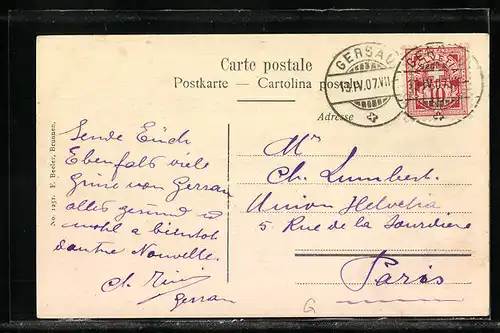 Carte postale
Postkarte — Cartolina postale
Adresse
GERSAU
13.IV.07.VII
GERSAU
IV.07.
10
No. 1251. F. Beeler, Brunnen.
Sende Euch
Ebenfals viele
Grüse von Gersau
alles gesund u
wohl a bientot
dautre Nouvelle.
Ch.
Gersau
Mr
Ch. Lumbert.
Union Helvetia
5 Rue de la Sourdiere
Paris
G